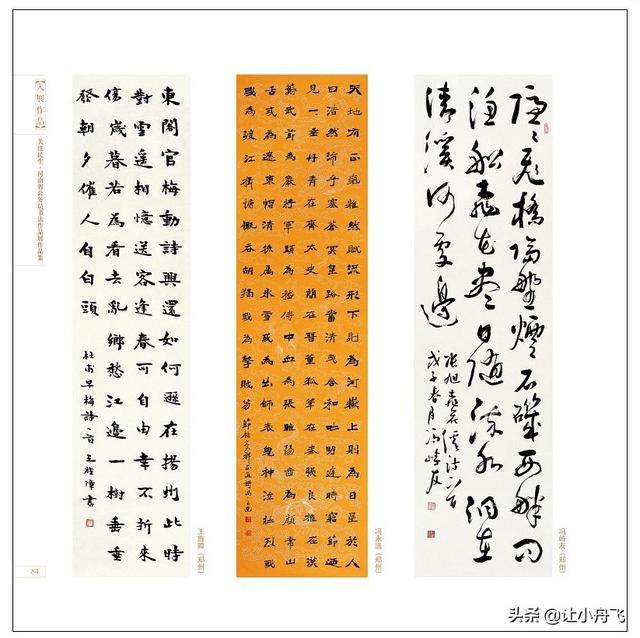 【入展作品】
关注民生·河南省公务员书法作品展作品集
84
隱〻飛橋隔野煙石磯西畔问
渔船桃花尽日随流水洞在
清溪何處邊
张旭桃花溪诗一首
戊子春月冯崎友
冯崎友（郑州）
天地有正氣雜然賦流形下則為河嶽上則為日星於人
曰浩然沛乎塞蒼冥皇路當清夷含和吐明庭時窮節乃
見一垂丹青在齊太史簡在晉董狐筆在秦張良椎在漢
蘇武節為嚴將軍頭為嵇侍中血為張睢陽齒為顏常山
舌或為遼東帽清操厲冰雪或為出師表鬼神泣壯烈
或為渡江楫慷慨吞胡羯或為擊賊笏
節錄文天祥正氣歌
冯永选（郑州）
東閣官梅動詩興還如何遜在揚州此時
對雪遙相憶送客逢春可自由幸不折來
傷歲暮若為看去亂鄉愁江邊一樹垂垂
發朝夕催人自白頭
杜甫早梅詩一首王旌障書
王旌障（郑州）
头条 @让小舟飞